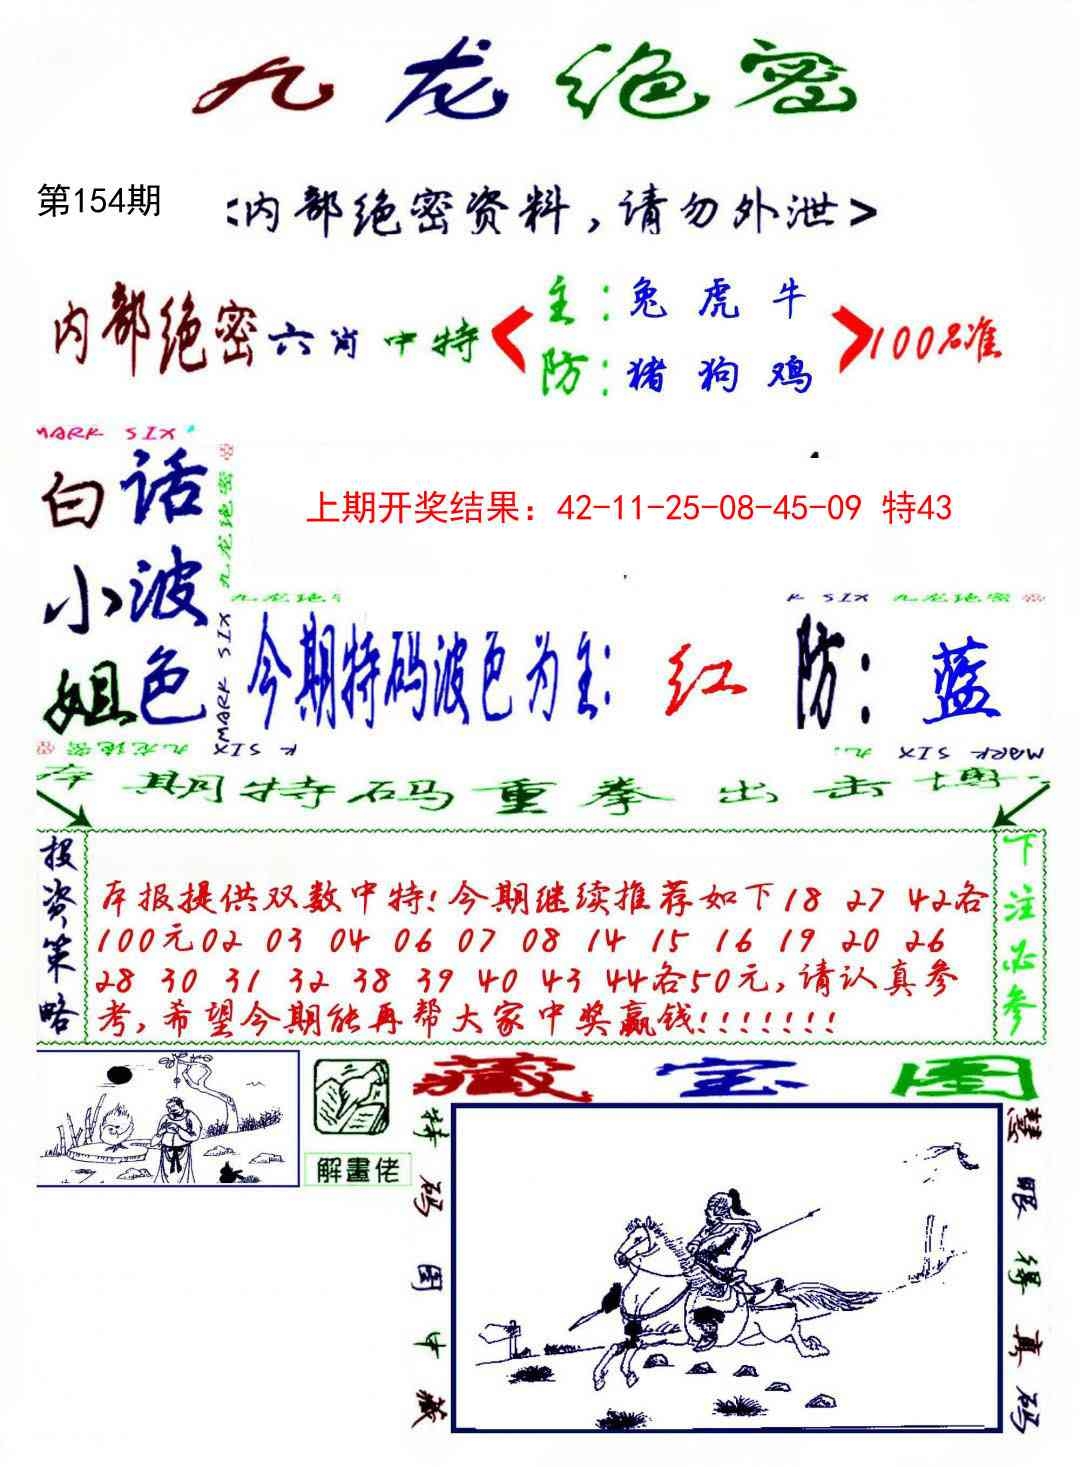 九龙绝密
第154期
<内部绝密资料，请勿外泄>
内部绝密六肖中特
主：兔 虎 牛
防：猪 狗 鸡
100%准
MARK SIX
白话
小波
姐色
九龙绝密
MARK SIX
上期开奖结果：42-11-25-08-45-09 特43
九龙绝密
K SIX 九龙绝密
今期特码波色为主：红 防：蓝
九龙绝密
MARK SIX
本期特码重拳出击博
投资策略
本报提供双数中特！今期继续推荐如下18 27 42各
100元02 03 04 06 07 08 14 15 16 19 20 26
28 30 31 32 38 39 40 43 44各50元，请认真参
考，希望今期能再帮大家中奖赢钱！！！！！！！
下注必参
解畫佬
藏宝图
特码图中藏
慧眼得真码